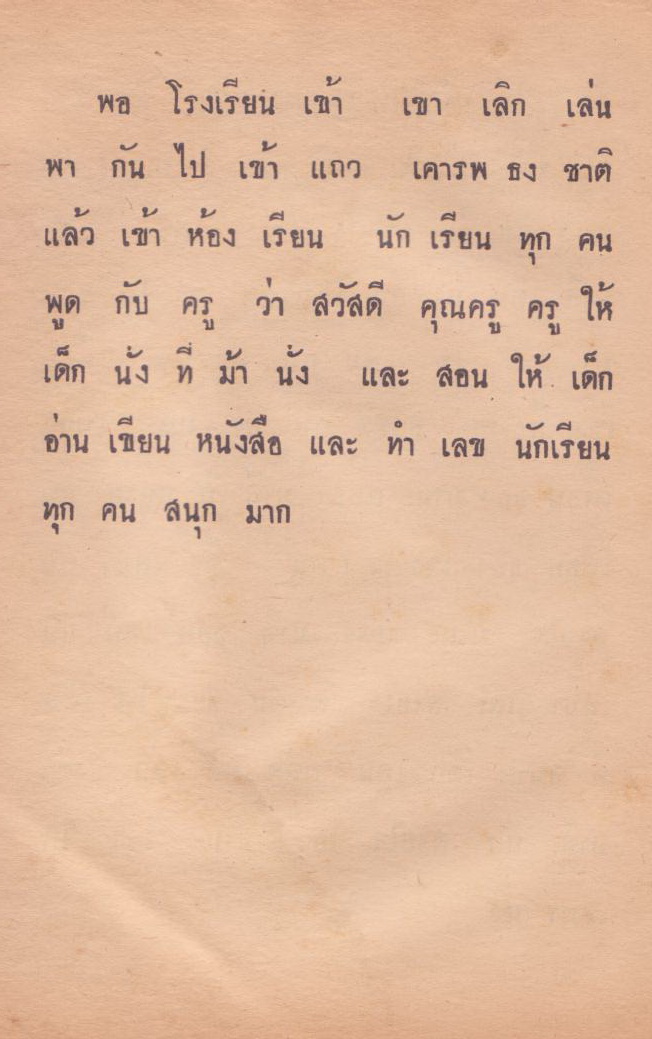 พอ โรงเรียน เข้า เขา เลิก เล่น
พา กัน ไป เข้า แถว เคารพ ธง ชาติ
แล้ว เข้า ห้อง เรียน นัก เรียน ทุก คน
พูด กับ ครู ว่า สวัสดี คุณครู ครู ให้
เด็ก นั่ง ที่ ม้า นั่ง และ สอน ให้ เด็ก
อ่าน เขียน หนังสือ และ ทำ เลข นักเรียน
ทุก คน สนุก มาก